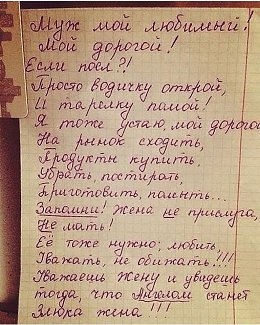 Муж мой любимый!
Мой дорогой!
Если поел?!
Просто водичку открой,
И тарелку помой!
Я тоже устаю, мой дорогой
На рынок сходить,
Продукты купить,
Убрать, постирать,
Приготовить, помыть...
Запомни! Жена не прислуга,
Не мать!
Её тоже нужно, любить,
Уважать, не обижать!!!
Уважаешь жену и увидешь
тогда, что Ангелом станет
Злюка жена!!!